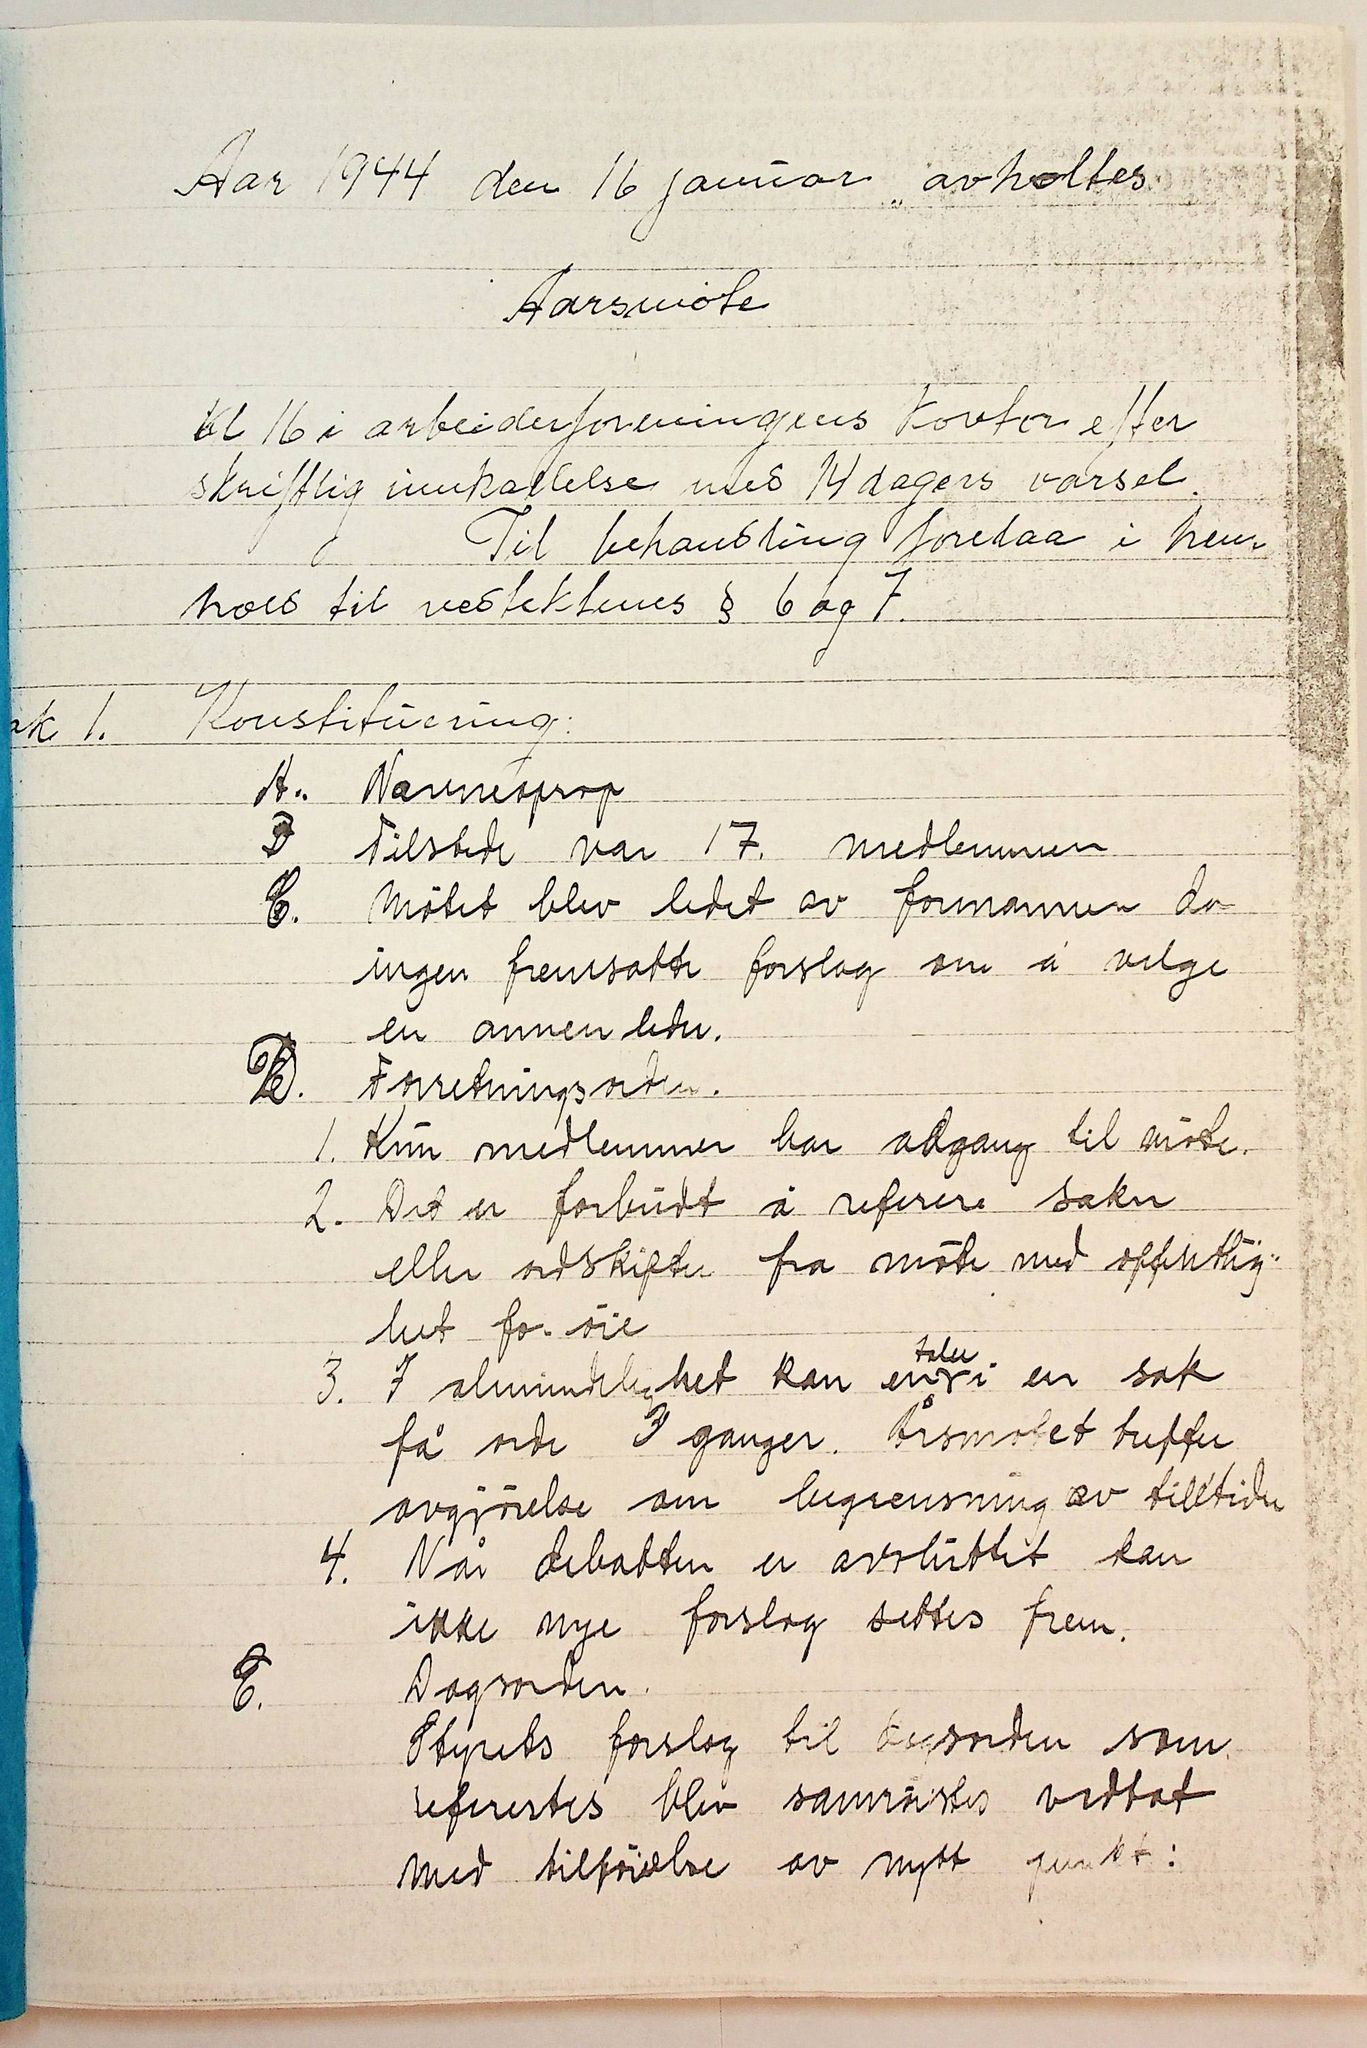 Aar 1944 den 16 januar „ avholtes
Aarsmöte
Kl 16 i arbeiderforeningens Kontor efter
skriftlig innkallelse med 14 dagers varsel.
Til behandling forelaa i hen-
hold til vedtektenes § 6 og 7.
ak 1. Konstituering:
A.. Navneoprop
B Tilstede var 17. medlemmer
C. Mötet blev ledet av formannen da
ingen fremsatte forslag om å velge
en annen leder.
D. Forretningsorden.
1. Kun medlemmer har adgang til möte.
2. Det er forbudt å referere saker
eller ordskifter fra möte med offentlig-
het for öie
3. I almindelighet kan en taler i en sak
få orde 3 ganger. Årsmötet treffer
avgjörelse om begrensning av
4. Når debatten er avsluttet kan
ikke nye forslag settes frem.
E. Dagsorden.
Styrets forslag til dagsorden som
refertes blev vedtat
med tilföielse av nytt punkt: